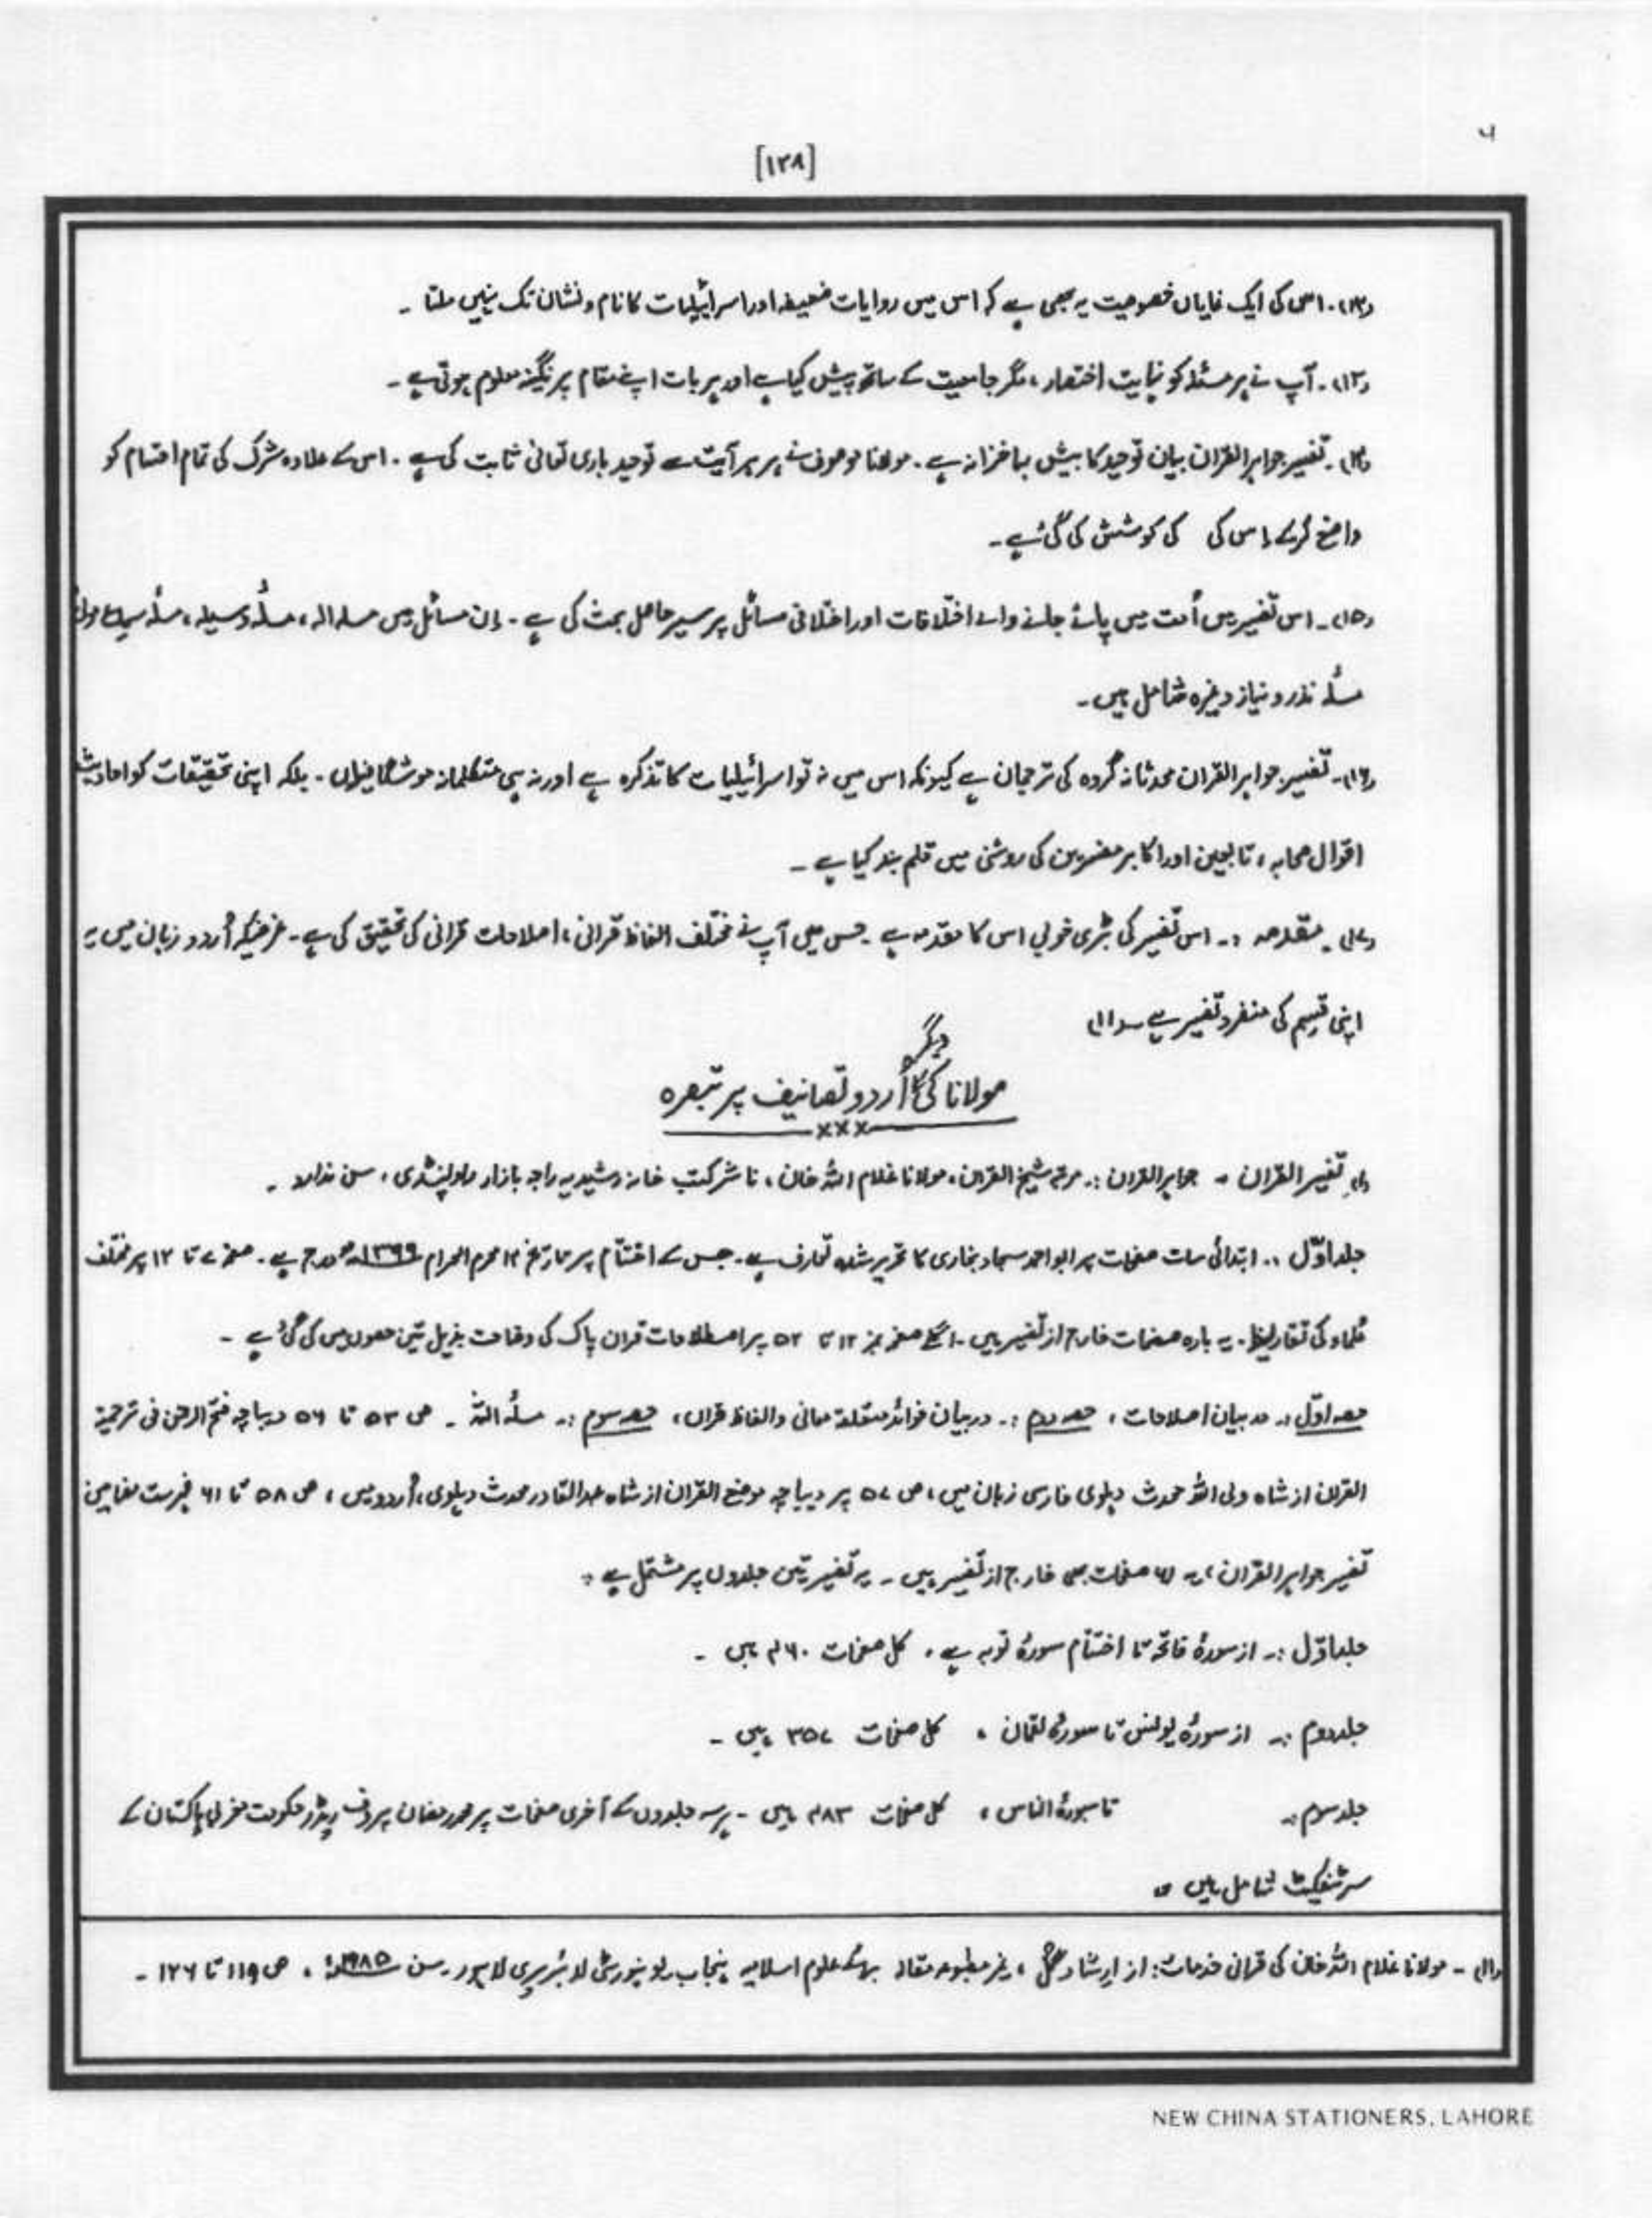 [۱۲۸]
(۱۲)۔ اس کی ایک نمایاں خصوصیت یہ بھی ہے کہ اس میں روایات ضعیفہ اور اسرائیلیات کا نام و نشان تک نہیں ملتا ۔
(۱۳)۔ آپ نے ہر مسئلہ کو نہایت اختصار ، مگر جامعیت کے ساتھ پیش کیا ہے اور ہر بات اپنے مقام پر نگینہ معلوم ہوتی ہے ۔
(۱۴)۔ تفسیر جواہر القرآن بیان توحید کا بیش بہا خزانہ ہے ۔ مولانا موصوف نے ہر ہر آیت سے توحید باری تعالیٰ ثابت کی ہے ۔ اس کے علاوہ شرک کی تمام اقسام کو
واضح کرکے اس کی کی کوشش کی گئی ہے ۔
(۱۵)۔ اس تفسیر میں اُمت میں پائے جانے والے اختلافات اور اختلافی مسائل پر سیر حاصل بحث کی ہے ۔ اِن مسائل میں مسلہ الہ ، مسلٔہ وسیلہ ، مسلٔہ سماع موتٰی
مسلٔہ نذر و نیاز وغیرہ شامل ہیں ۔
(۱۶)۔ تفسیر جواہر القرآن محدثانہ گروہ کی ترجمان ہے کیونکہ اس میں نہ تو اسرائیلیات کا تذکرہ ہے اور نہ ہی متکلمانہ موشگافیاں ۔ بلکہ اپنی تحقیقات کو احادیث
اقوال صحابہ ، تابعین اور اکابر مفسرین کی روشنی میں قلم بند کیا ہے ۔
(۱۷)۔ مقدمہ :۔ اس تفسیر کی بڑی خوبی اس کا مقدمہ ہے ۔ جس میں آپ نے مختلف الفاظ قرآنی ، اصلاحات قرآنی کی تحقیق کی ہے ۔ غرضیکہ اُردو زبان میں یہ
اپنی قسم کی منفرد تفسیر ہے ۔(۱)
مولانا کی دیگر اُردو تصانیف پر تبصرہ
×××
(۱)۔ تفسیر القرآن ۔ جواہر القرآن :۔ مرتبہ شیخ القرآن ، مولانا غلام اللہ خان ، ناشر کتب خانہ رشیدیہ راجہ بازار راولپنڈی ، سن ندارد ۔
جلد اوّل :۔ ابتدائی سات صفحات پر ابو احمد سجاد بخاری کا تحریر شدہ تعارف ہے ۔ جس کے اختتام پر تاریخ ۱۴ محرم الحرام درج ہے ۔ صفحہ ۷ تا ۱۲ پر مختلف
علماء کی تقاریظ ۔ یہ بارہ صفحات خارج از تفسیر ہیں ۔ اگلے صفحہ نمبر ۱۲ تا ۵۲ پر اصطلاحات قرآن پاک کی وضاحت بذیل تین حصوں میں کی گئی ہے ۔
حصہ اوّل :۔ در بیان اصلاحات ، حصہ دوم :۔ در بیان فوائد متعلقہ معانی و الفاظ قرآن ، حصہ سوم :۔ مسلٔہ اللہ ۔ ص ۵۳ تا ۵۶ دیباچہ فتح الرحمٰن فی ترجمۃ
القرآن از شاہ ولی اللہ محدث دہلوی فارسی زبان میں ، ص ۵۷ پر دیباچہ موضح القرآن از شاہ عبدالقادر محدث دہلوی ، اُردو میں ، ص ۵۸ تا ۶۱ فہرست مضامین
تفسیر جواہر القرآن ، یہ ۶۱ صفحات بھی خارج از تفسیر ہیں ۔ یہ تفسیر تین جلدوں پر مشتمل ہے :
جلد اوّل :۔ از سورۂ فاتحہ تا اختتام سورۂ توبہ ہے ۔ کل صفحات ۴۶۰ ہیں ۔
جلد دوم :۔ از سورۂ یونس تا سورۂ لقمان ، کل صفحات ۳۵۷ ہیں ۔
جلد سوم :۔ تا سورۂ الناس ، کل صفحات ۴۸۳ ہیں ۔ ہر سہ جلدوں کے آخری صفحات پر محمد رمضان پروف ریڈر حکومت مغربی پاکستان کے
سرٹیفکیٹ شامل ہیں
(۱)۔ مولانا غلام اللہ خان کی قرآنی خدمات : از ارشاد گل ، غیر مطبوعہ مقالہ برائے علوم اسلامیہ پنجاب یونیورسٹی لائبریری لاہور ۔ سن ۱۹۸۵ء ، ص ۱۱۹ تا ۱۲۶ ۔
NEW CHINA STATIONERS, LAHORE